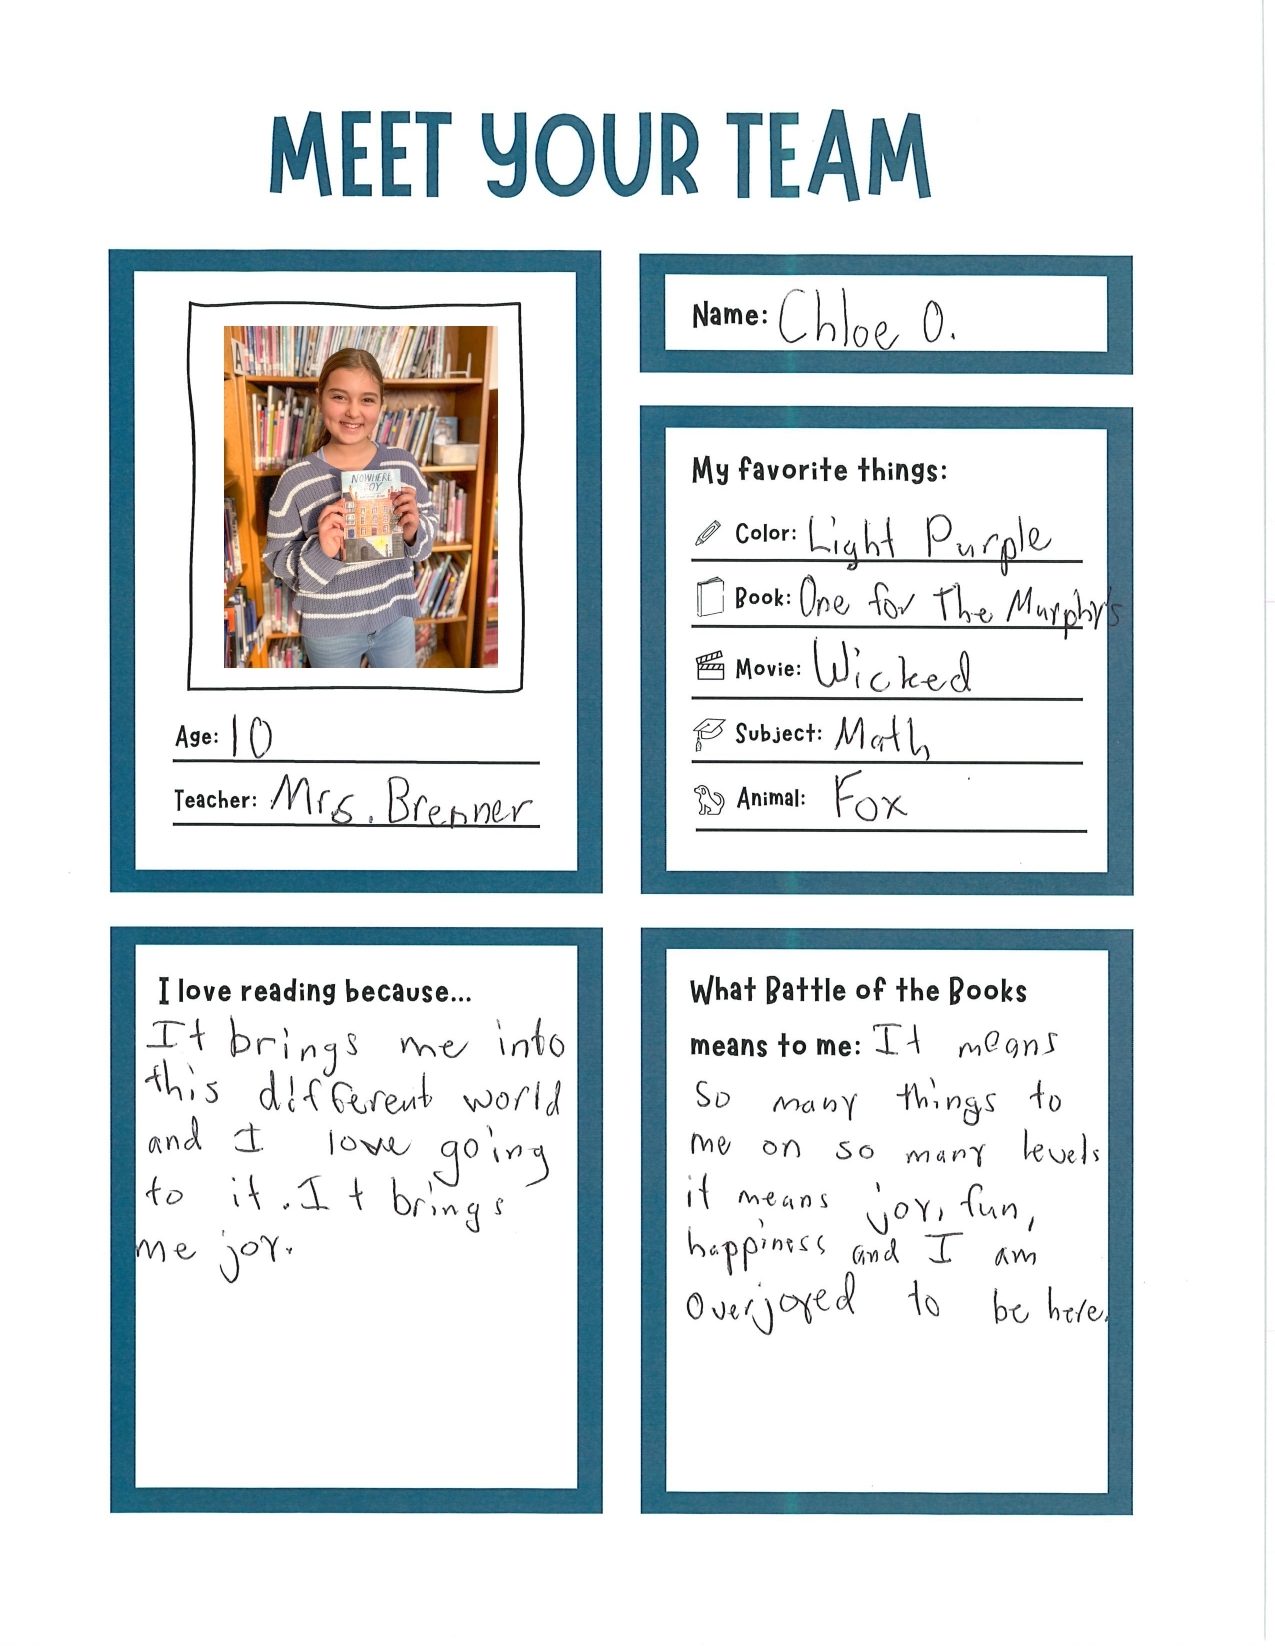 MEET YOUR TEAM
NOWHERE
BOY
Age: 10
Teacher: Mrs. Brenner
Name: Chloe O.
My favorite things:
Color: Light Purple
Book: One for The Murphy's
Movie: Wicked
Subject: Math
Animal: Fox
I love reading because...
It brings me into
this different world
and I love going
to it. It brings
me joy.
What Battle of the Books
means to me: It means
so many things to
me on so many levels
it means joy, fun,
happiness and I am
overjoyed to be here.